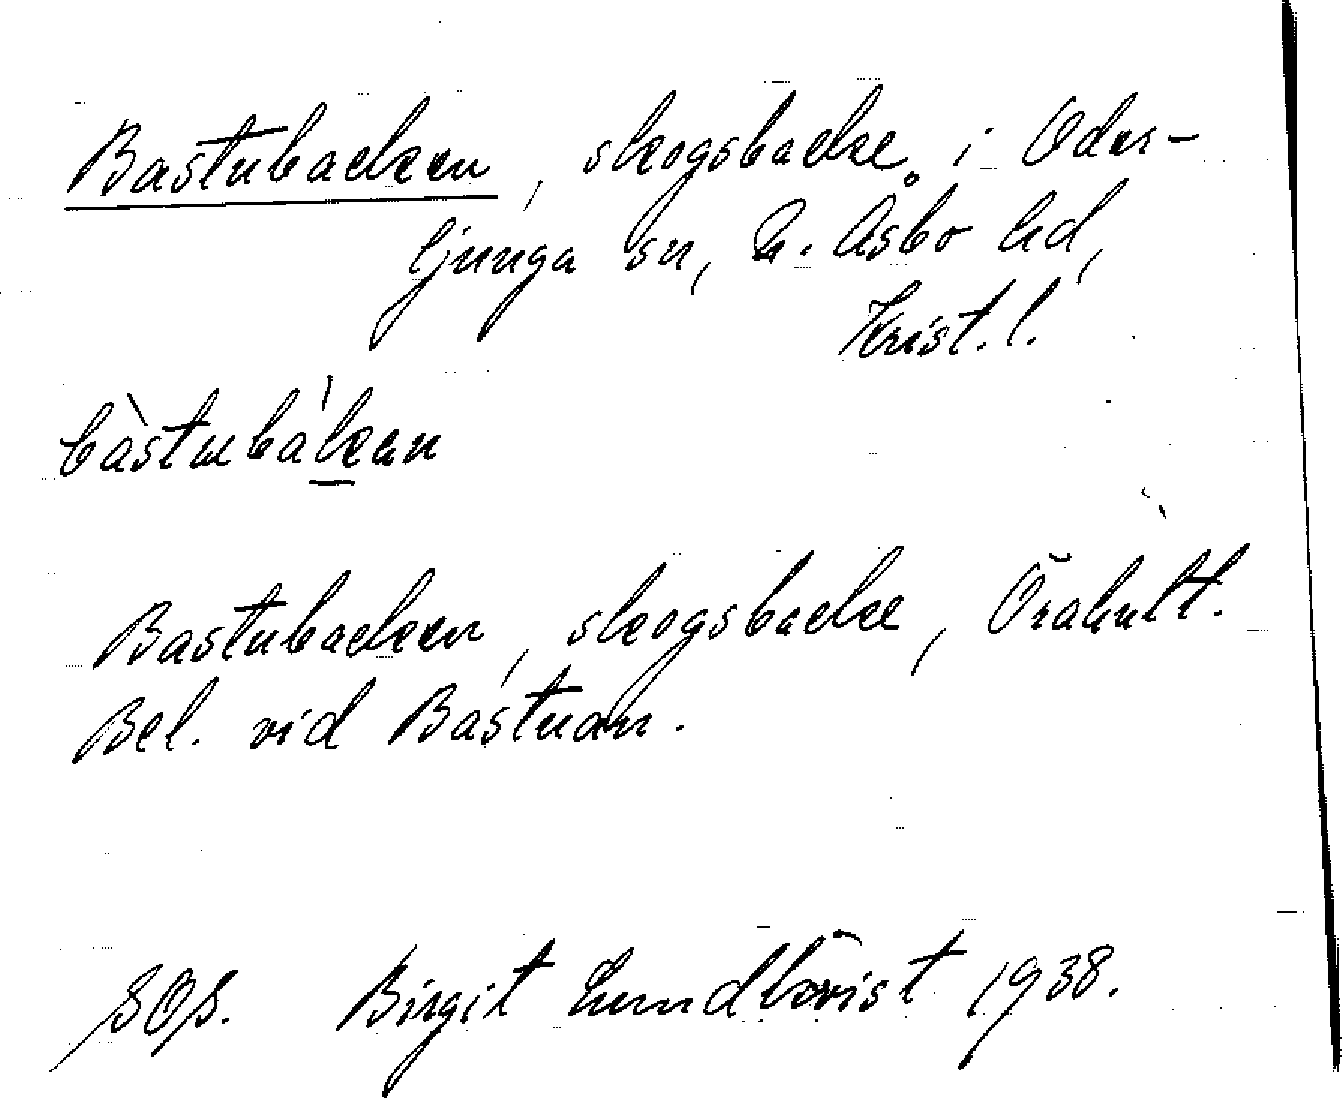 Bastubacken, skogsbacke i Oder-
ljunga sn, N. Åsbo hd,
Krist. l.
bàstubákan
Bastubacken, skogsbacke, Örahult.
Bel. vid Bastuan.
SOS. Birgit Lundkvist 1938.